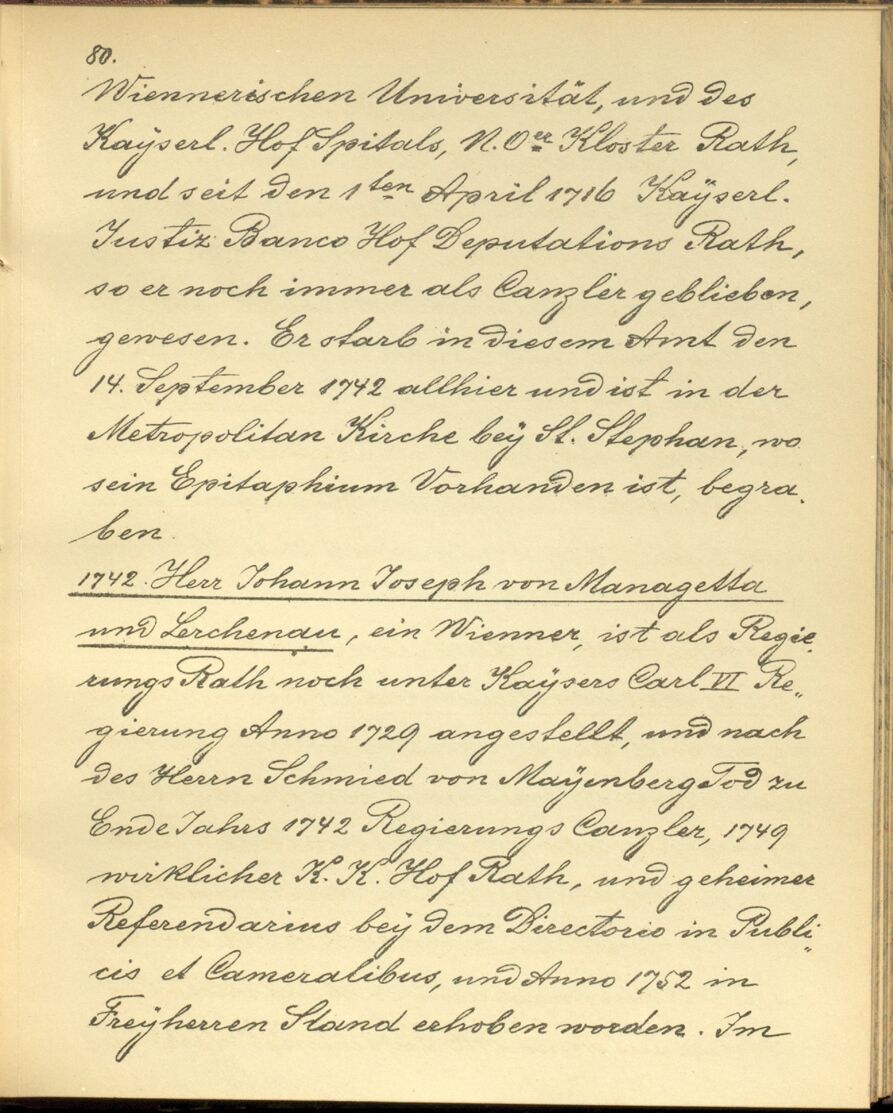 80.
Wiennerischen Universität, und des
Kaÿserl. Hof Spitals, N. Oer Kloster Rath,
und seit den 1ten April 1716 Kaÿserl.
Justiz Banco Hof Deputations Rath,
so er noch immer als Canzler geblieben,
gewesen. Er starb in diesem Amt den
14. September 1742 allhier und ist in der
Metropolitan Kirche beÿ St. Stephan, wo
sein Epitaphium Vorhanden ist, begra„
ben
1742. Herr Johann Joseph von Managetta
und Lerchenau, ein Wienner, ist als Regie„
rungs Rath noch unter Kaÿsers Carl VI Re„
gierung Anno 1729 angestellt, und nach
des Herrn Schmied von Maÿenberg Tod zu
Ende Jahrs 1742 Regierungs Canzler, 1749
wirklicher K. K. Hof Rath, und geheimer
Referendarius beÿ dem Directorio in Publi„
cis et Cameralibus, und Anno 1752 in
Freÿherren Stand erhoben worden. Im